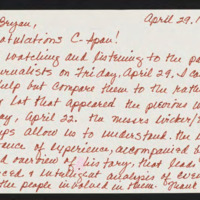 April 29, 1
Bryan,
atulations C-Span!
watching and listening to the pa
urnalists on Friday, April 29, I ca
help but compare them to the rathe
lot that appeared the previous w
day, April 22. The messrs Wicker/
ps allow us to understand the
ance of experience, accompanied b
d overview of history, that lead
ced & intelligent analyses of even
the people involved in them. Thank